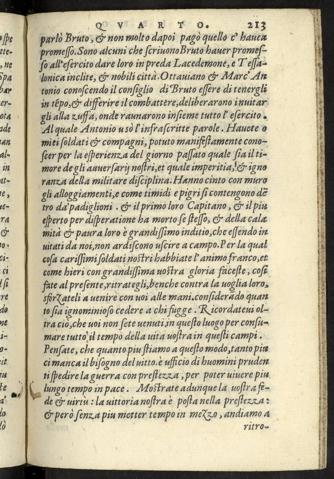 QVARTO. 213
parlò Bruto, & non molto dapoi pagò quello c' hauea
promesso. Sono alcuni che scriuono Bruto hauer promes-
so all' esercito dare loro in preda Lacedemone, e Tessa-
lonica inclite, & nobili città. Ottauiano & Marc' An
tonio conoscendo il consiglio di Bruto essere di tenergli
in tẽpo, & differire il combattere, deliberarono inuitar
gli alla zuffa, onde raunarono insieme tutto l' esercito.
Al quale Antonio usò l' infrascritte parole. Hauete o
miei soldati & compagni, potuto manifestamente cono-
scer per la esperienza del giorno passato quale sia il ti-
more de gli auuersarij nostri, et quale imperitia, & igno
ranza della militare disciplina. Hanno cinto con muro
gli alloggiamenti, e come timidi e pigri si contengono dẽ
tro da padiglioni. & il primo loro Capitano, & il piu
esperto per disperatione ha morto se stesso, & della cala
mità & paura loro è grandissimo inditio, che essendo in
uitati da noi, non ardiscono uscire a campo. Per la qual
cosa carissimi soldati nostri habbiate l' animo franco, et
come hieri con grandissima uostra gloria faceste, cosi
fate al presente, ritrategli, benche contra la uoglia loro,
sforzateli a uenire con uoi alle mani. considerado quan
to sia ignominioso cedere a chi fugge. Ricordateui ol-
tra ciò, che uoi non sete uenuti in questo luogo per consu-
mare tutto' il tempo della uita uostra in questi campi.
Pensate, che quanto piu stiamo a questo modo, tanto piu
ci manca il bisogno del uitto. è ufficio di huomini pruden
ti spedire la guerra con prestezza, per poter uiuere piu
lungo tempo in pace. Mostrate adunque la uostra fe-
de & uirtù: la uittoria nostra è posta nella prestezza:
& però senza piu metter tempo in mezzo, andiamo a
ritro-